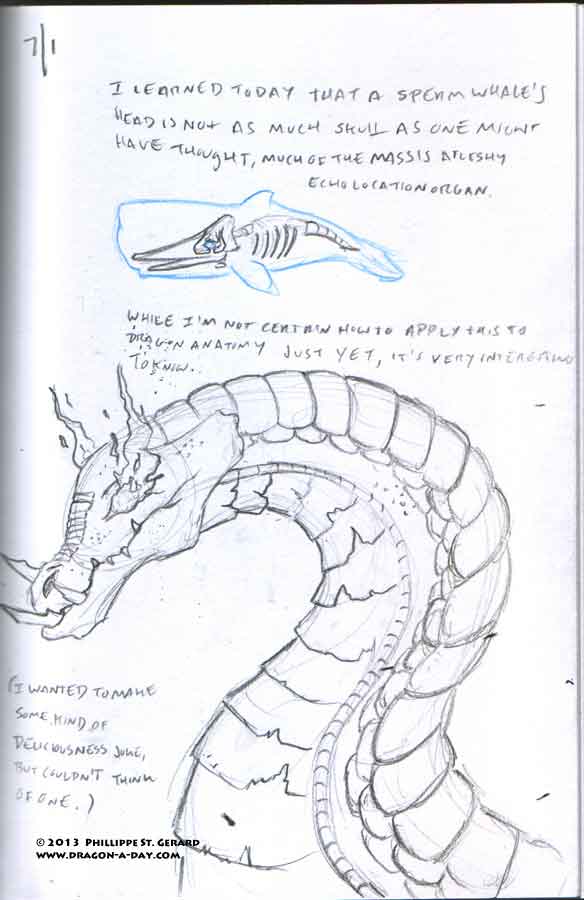 7/1
I LEARNED TODAY THAT A SPERM WHALE'S
HEAD IS NOT AS MUCH SKULL AS ONE MIGHT
HAVE THOUGHT, MUCH OF THE MASS IS A FLESHY
ECHO LOCATION ORGAN.
WHILE I'M NOT CERTAIN HOW TO APPLY THIS TO
DRAGON ANATOMY JUST YET, IT'S VERY INTERESTING
TO KNOW.
(I WANTED TO MAKE
SOME KIND OF
DELICIOUSNESS JOKE,
BUT COULDN'T THINK
OF ONE.)
© 2013 PHILLIPPE ST. GERARD
WWW.DRAGON-A-DAY.COM